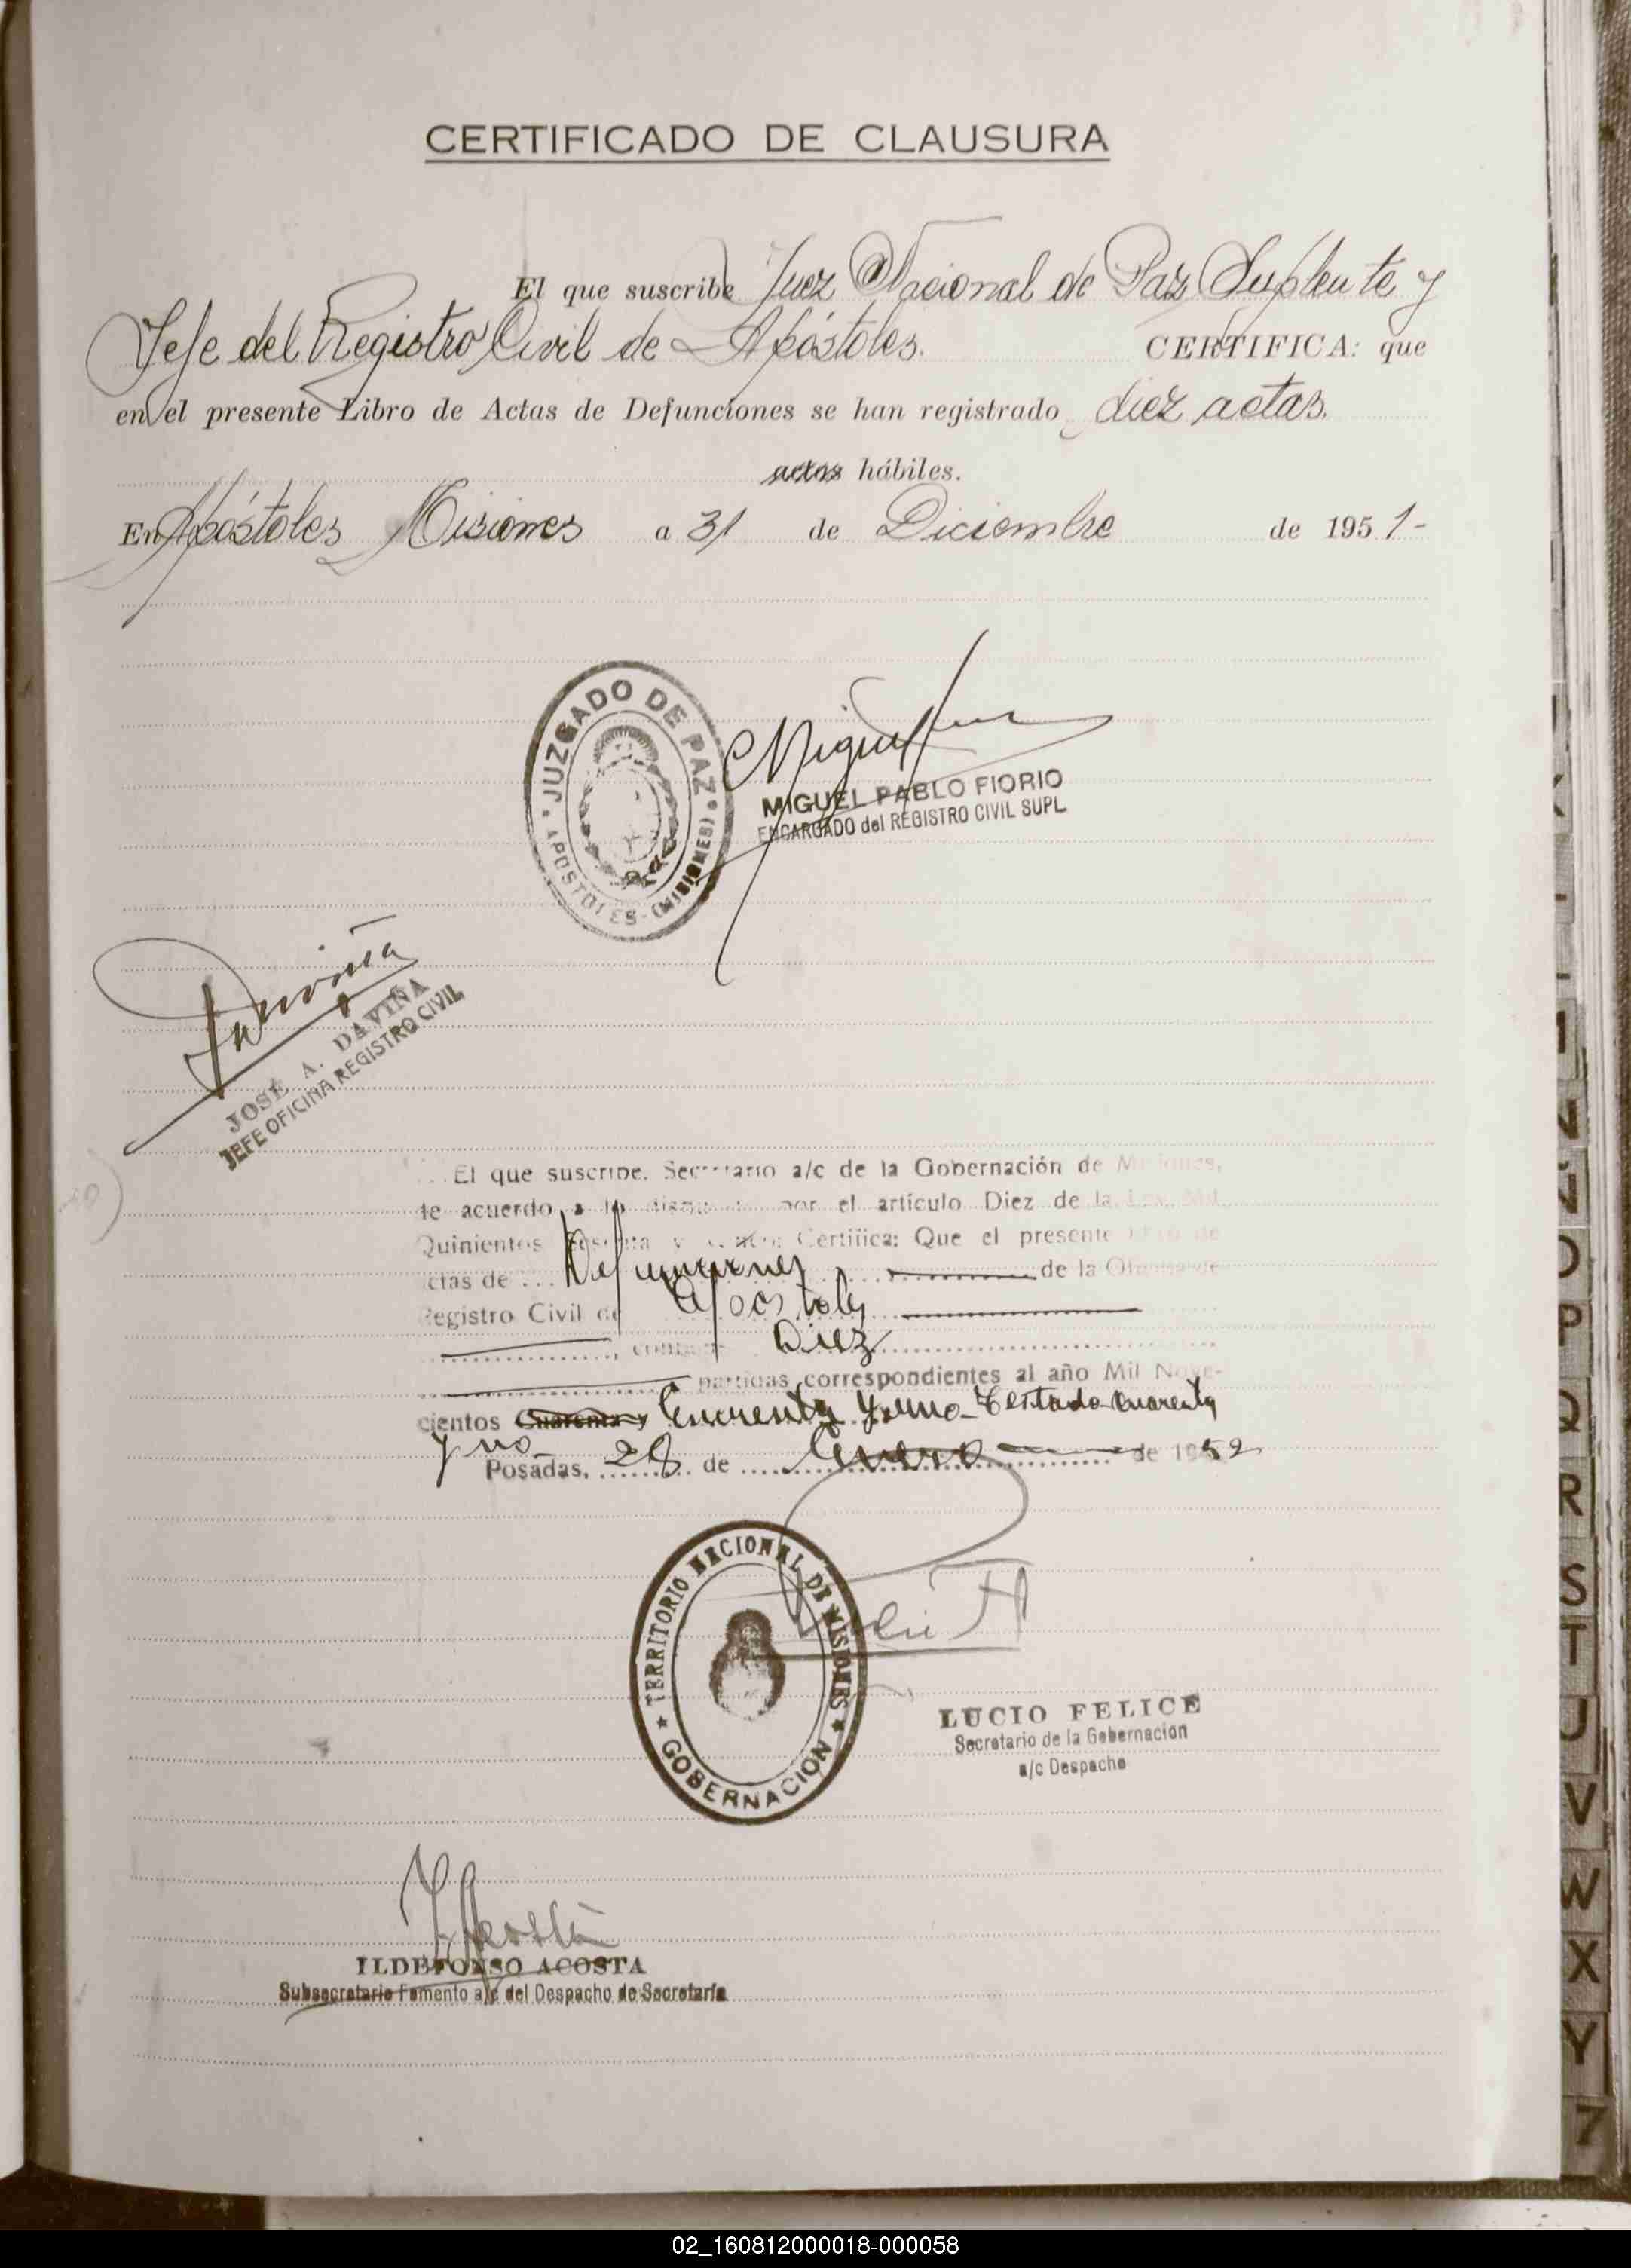 CERTIFICADO DE CLAUSURA
El que suscribe Juez Nacional de Paz Suplente y
Jefe del Registro Civil de Apóstoles. CERTIFICA: que
en el presente Libro de Actas de Defunciones se han registrado diez actas.
actos hábiles.
En Apóstoles Misiones a 31 de Diciembre de 1951-
JUZGADO DE PAZ
APOSTOLES - (MISIONES)
MIGUEL PABLO FIORIO
ENCARGADO del REGISTRO CIVIL SUPL.
Daviña
JOSÉ A. DAVIÑA
JEFE OFICINA REGISTRO CIVIL
El que suscribe, Secretario a/c de la Gobernación de Misiones,
de acuerdo a lo dispuesto por el artículo Diez de la Ley Mil
Quinientos Sesenta y Certifica: Que el presente Libro de
Actas de Defunciones de la Oficina de
Registro Civil de Apóstoles
Diez
partidas correspondientes al año Mil Nove-
cientos Cuarenta y Cincuenta y uno - Testado Cuarenta
y no
Posadas, 28 de Enero de 1952
TERRITORIO NACIONAL DE MISIONES
GOBERNACION
LUCIO FELICE
Secretario de la Gobernación
a/c Despacho
Acosta
ILDEFONSO ACOSTA
Subsecretario Fomento a/c del Despacho de Secretaría
N
Ñ
O
P
Q
R
S
T
U
V
W
X
Y
Z
02_160812000018-000058